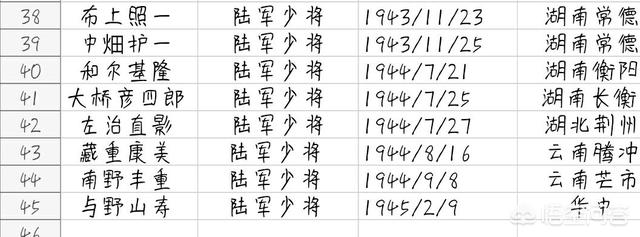 38 布上照一 陆军少将 1943/11/23 湖南常德
39 中畑护一 陆军少将 1943/11/25 湖南常德
40 和尔基隆 陆军少将 1944/7/21 湖南衡阳
41 大桥彦四郎 陆军少将 1944/7/25 湖南长衡
42 左治直影 陆军少将 1944/7/27 湖北荆州
43 藏重康美 陆军少将 1944/8/16 云南腾冲
44 南野丰重 陆军少将 1944/9/8 云南芒市
45 与野山寿 陆军少将 1945/2/9 华中
46
悟空问答